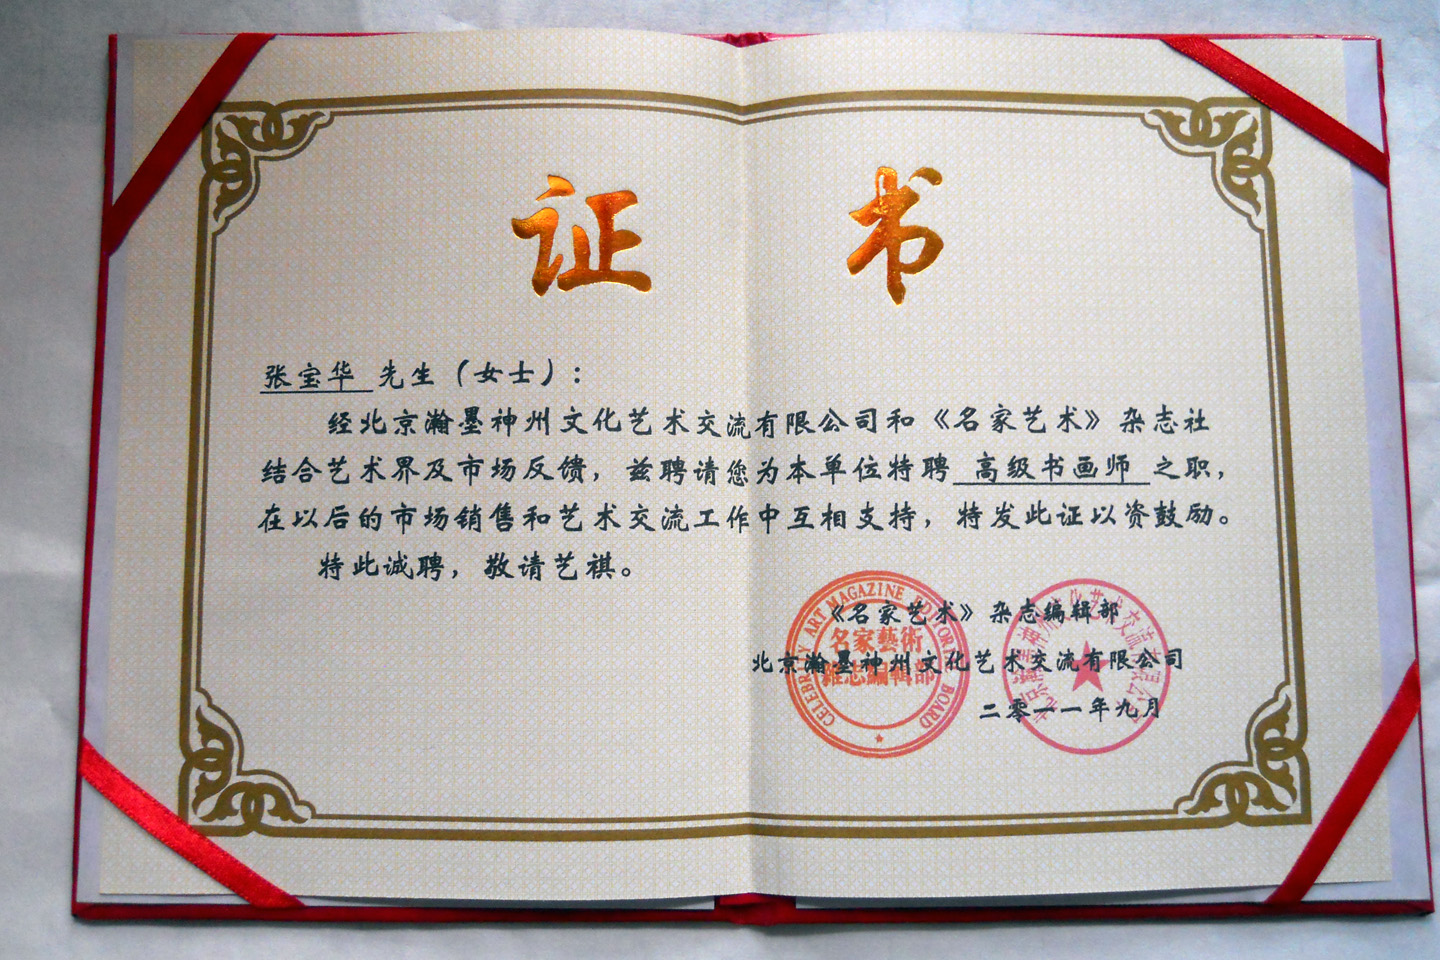 证书
张宝华 先生（女士）：
经北京瀚墨神州文化艺术交流有限公司和《名家艺术》杂志社
结合艺术界及市场反馈，兹聘请您为本单位特聘 高级书画师 之职，
在以后的市场销售和艺术交流工作中互相支持，特发此证以资鼓励。
特此诚聘，敬请艺祺。
《名家艺术》杂志编辑部
北京瀚墨神州文化艺术交流有限公司
二零一一年九月
CELEBRITY ART MAGAZINE EDITORIE BOARD
名家藝術
雜志編輯部
北京瀚墨神州文化艺术交流有限公司